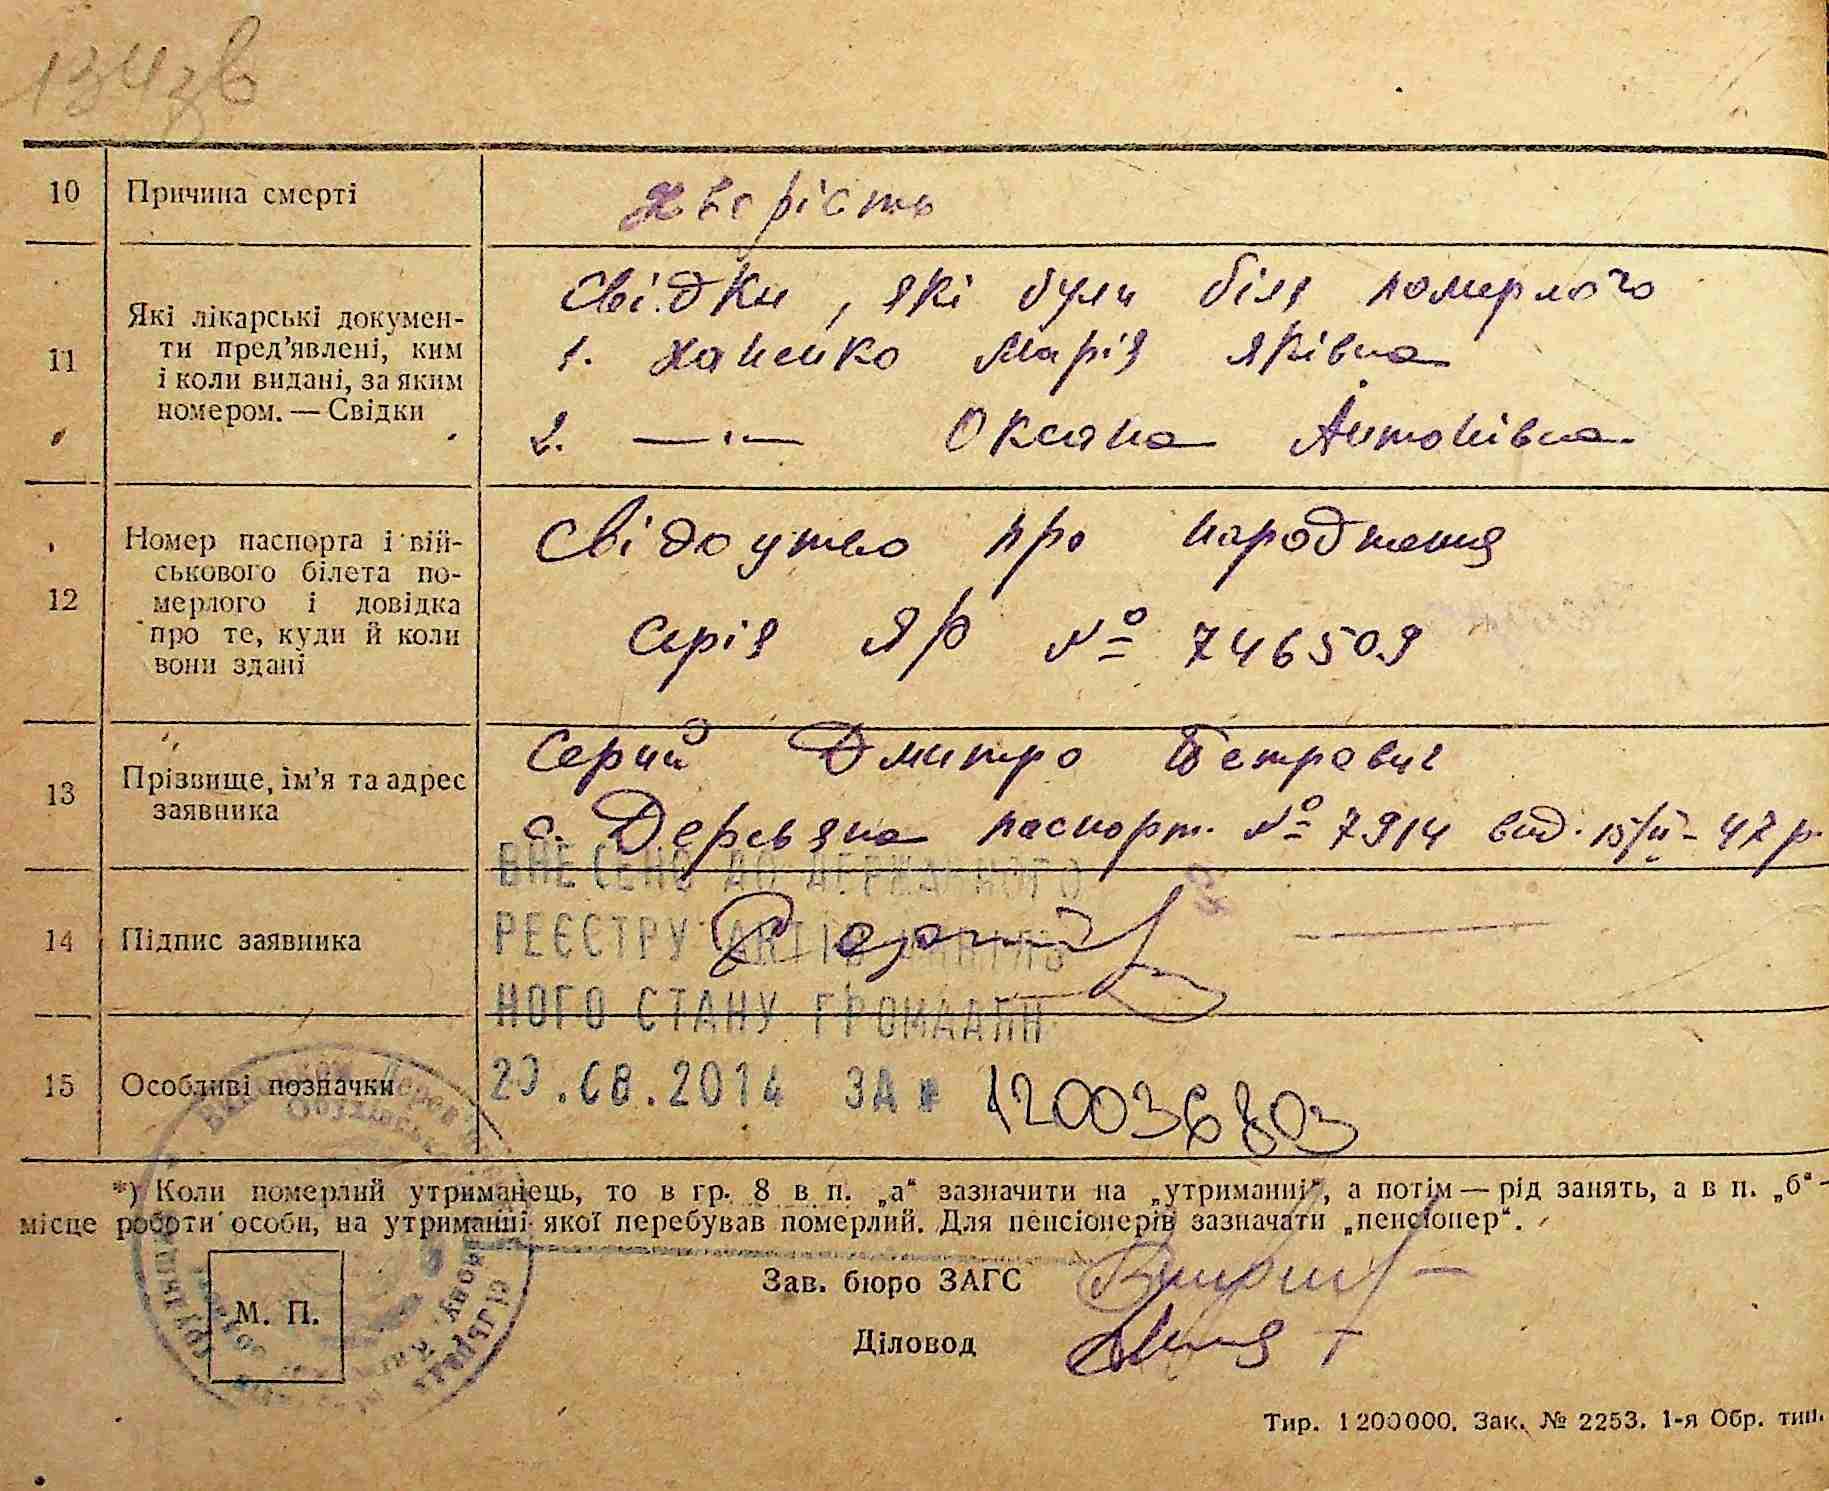 134зв
10 Причина смерті
Хворість
11 Які лікарські докумен-
ти пред'явлені, ким
і коли видані, за яким
номером. — Свідки
Свідки, які були біля померлого
1. Ханенко Марія Яківна
2. —"— Оксана Антонівна
12 Номер паспорта і вій-
ськового білета по-
мерлого і довідка
про те, куди й коли
вони здані
Свідоцтво про народження
Серія ЯР № 746509
13 Прізвище, ім'я та адрес
заявника
Серий Дмитро Петрович
с. Дерев'яна паспорт. № 7914 вид. 15/II-47 р.
14 Підпис заявника
ВНЕСЕНО ДО ДЕРЖАВНОГО
РЕЄСТРУ АКТІВ ЦИВІЛЬ
НОГО СТАНУ ГРОМАДЯН
15 Особливі позначки
.08.2014 ЗА № 120036803
*) Коли померлий утриманець, то в гр. 8 в п. „а“ зазначити на „утриманні“, а потім — рід занять, а в п. „б“ -
місце роботи особи, на утриманні якої перебував померлий. Для пенсіонерів зазначати „пенсіонер“.
Зав. бюро ЗАГС
М. П.
Діловод
Тир. 1200000. Зак. № 2253. 1-я Обр. тип.